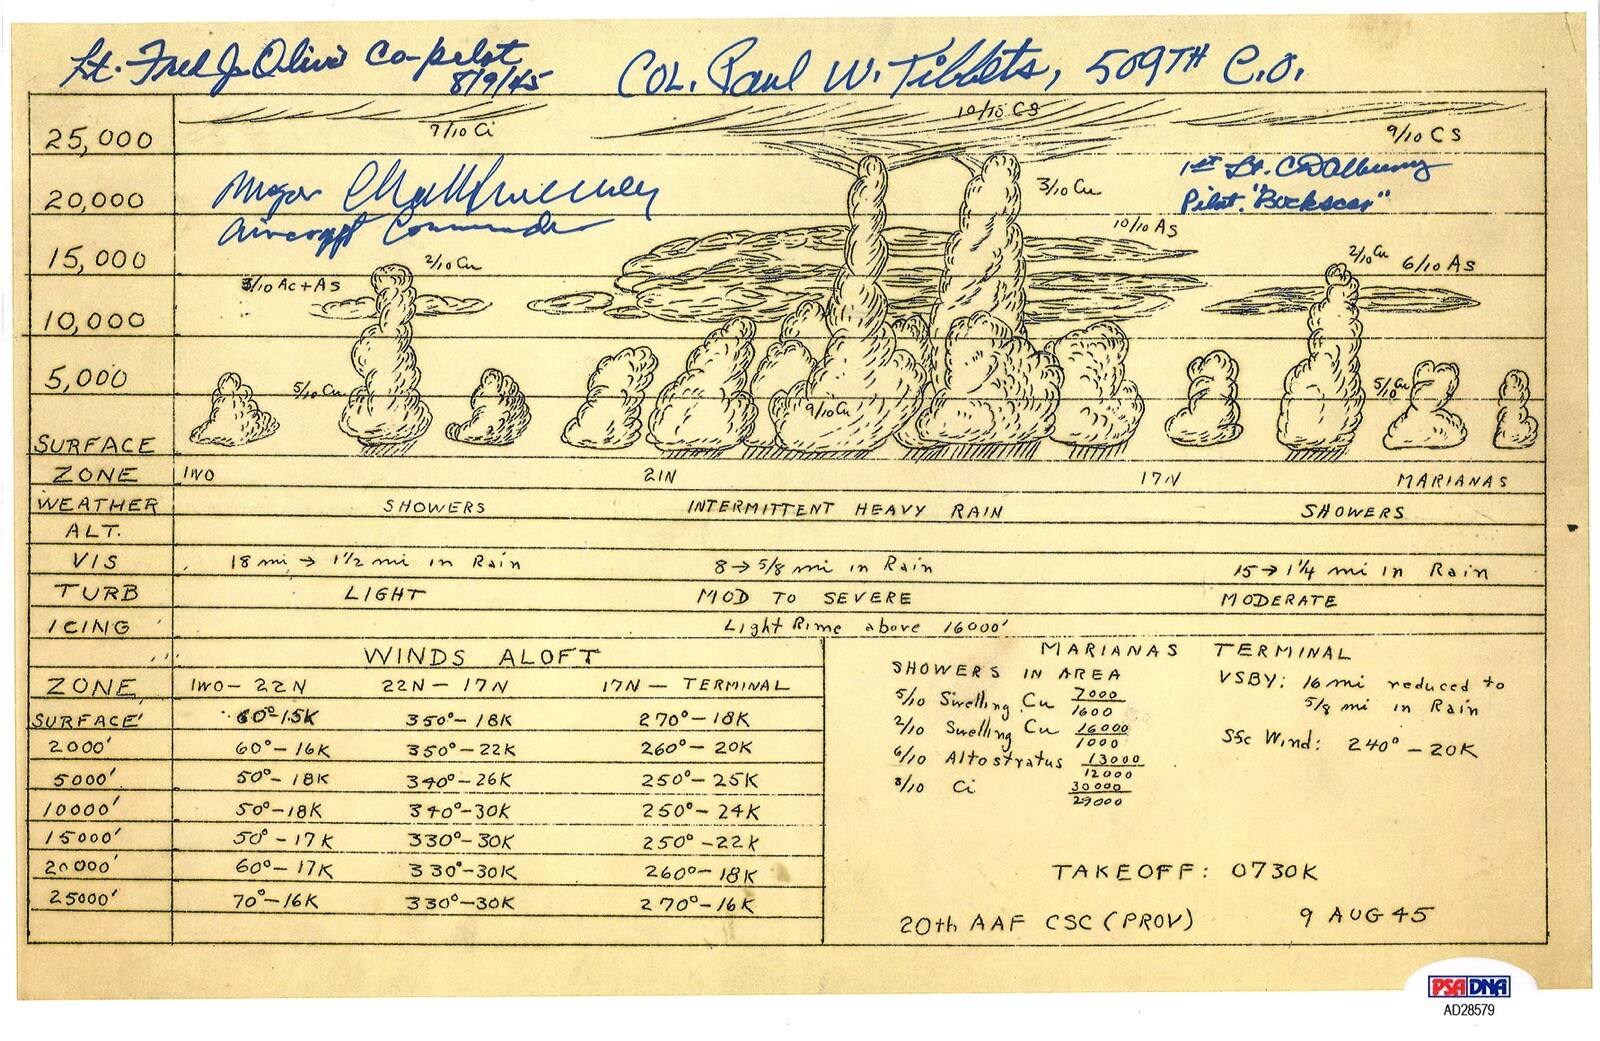 Lt. Fred J. Olivi Co-pilot
8/9/45
COL. Paul W. Tibbets, 509TH C.O.
25,000
7/10 Ci
10/10 CS
9/10 CS
Major
Aircraft Commander
1st Lt. CDAlbury
Pilot. "Bockscar"
20,000
3/10 Cu
10/10 AS
15,000
2/10 Cu
2/10 Cu
6/10 AS
3/10 Ac+AS
10,000
5,000
5/10 Cu
9/10 Cu
5/10 Cu
SURFACE
ZONE IWO 21N 17N MARIANAS
WEATHER SHOWERS INTERMITTENT HEAVY RAIN SHOWERS
ALT.
VIS 18 mi → 1 1/2 mi in Rain 8 → 5/8 mi in Rain 15 → 1 1/4 mi in Rain
TURB LIGHT MOD TO SEVERE MODERATE
ICING Light Rime above 16000'
WINDS ALOFT
ZONE IWO - 22N 22N - 17N 17N - TERMINAL
SURFACE 60° - 15K 350° - 18K 270° - 18K
2000' 60° - 16K 350° - 22K 260° - 20K
5000' 50° - 18K 340° - 26K 250° - 25K
10000' 50° - 18K 340° - 30K 250° - 24K
15000' 50° - 17K 330° - 30K 250° - 22K
20000' 60° - 17K 330° - 30K 260° - 18K
25000' 70° - 16K 330° - 30K 270° - 16K
MARIANAS TERMINAL
SHOWERS IN AREA
5/10 Swelling Cu 7000/1600
2/10 Swelling Cu 16000/1000
6/10 Altostratus 13000/12000
8/10 Ci 30000/29000
VSBY: 16 mi reduced to
5/8 mi in Rain
Sfc Wind: 240° - 20K
TAKEOFF: 0730K
20th AAF CSC (PROV) 9 AUG 45
PSA DNA
AD28579